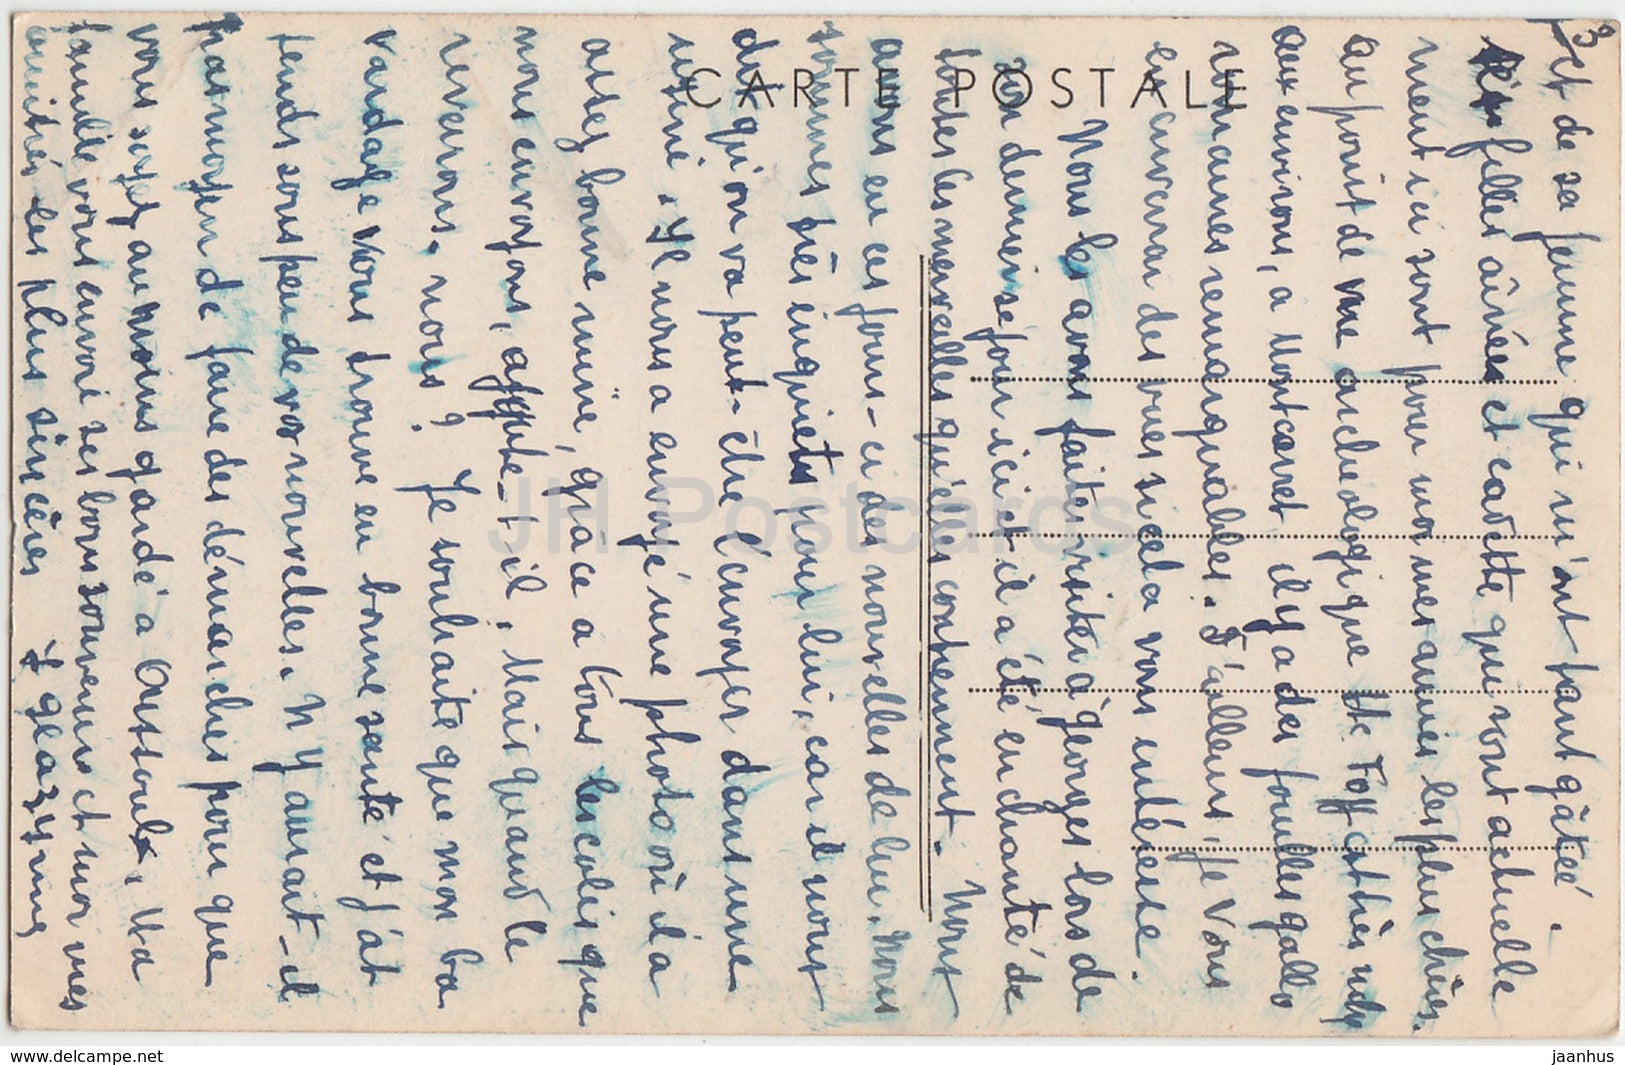 3
et de sa femme qui m'ont tant gâtée.
les filles aînées et cadette qui sont actuelle
ment ici sont pour nous mes amies les plus chères.
au point de vue archéologique St. Toff est très riche
aux environs, à Montcaret il y a des fouilles gallo
romaines remarquables. D'ailleurs, je vous
enverrai des vues si cela vous intéresse.
Nous les avons fait visiter à Georges lors de
son dernier séjour ici et il a été enchanté de
toutes les merveilles qu'elles contiennent. Nous
avons eu ces jours-ci des nouvelles de lui. Nous
sommes très inquiets pour lui, car il nous
dit qu'on va peut-être l'envoyer dans une
usine. Il nous a envoyé une photo où il a
assez bonne mine, grâce à tous les colis que
nous envoyons, ajoute-t-il. Mais quand le
reverrons-nous? Je souhaite que mon ba
vardage vous trouve en bonne santé et j'at
tends sous peu de vos nouvelles. N'y aurait-il
pas moyen de faire des démarches pour que
vous soyez au moins gardé à . Ma
famille vous envoie ses bons souvenirs et moi mes
amitiés les plus sincères
CARTE POSTALE
JH Postcards
www.delcampe.net
jaanhus